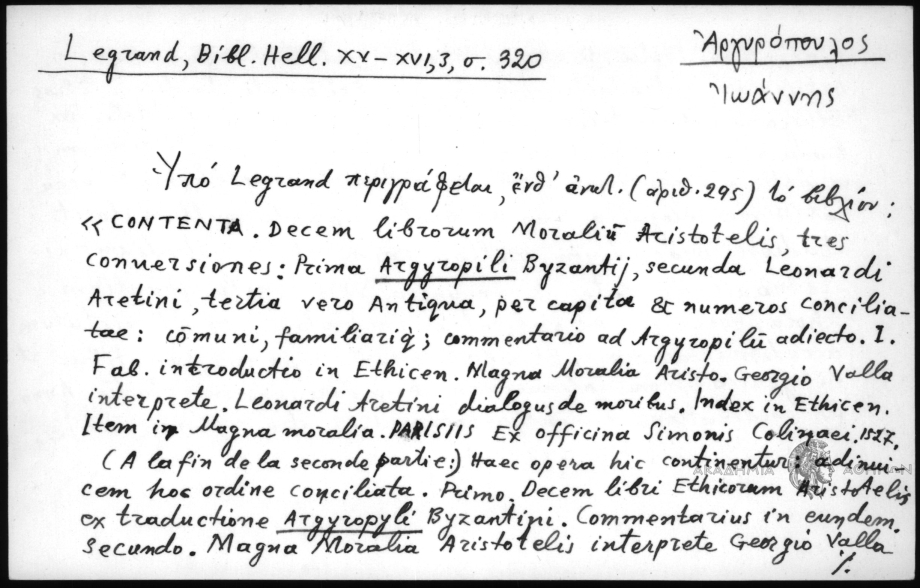 Legrand, Bibl. Hell. XV–XVI,3, σ. 320
Ἀργυρόπουλος
Ἰωάννης
Ὑπό Legrand περιγράφεται, ἔνθ' ἀνωτ. (ἀριθ. 295) τό βιβλίον:
«CONTENTA. Decem librorum Moraliū Aristotelis, tres
conversiones: Prima Argyropili Byzantij, secunda Leonardi
Aretini, tertia vero Antiqua, per capita & numeros concilia-
tae: cōmuni, familiariq̀; commentario ad Argyropilū adiecto. I.
Fab. introductio in Ethicen. Magna Moralia Aristo. Georgio Valla
interprete. Leonardi Aretini dialogus de moribus. Index in Ethicen.
Item in Magna moralia. PARISIIS Ex officina Simonis Colinaei, 1527.
(A la fin de la seconde partie:) Haec opera hic continentur: adinui-
cem hoc ordine conciliata. Primo. Decem libri Ethicorum Aristotelis
ex traductione Argyropyli Byzantini. Commentarius in eundem.
Secundo. Magna Moralia Aristotelis interprete Georgio Valla
./.
ΑΚΑΔΗΜΙΑ ΑΘΗΝΩΝ